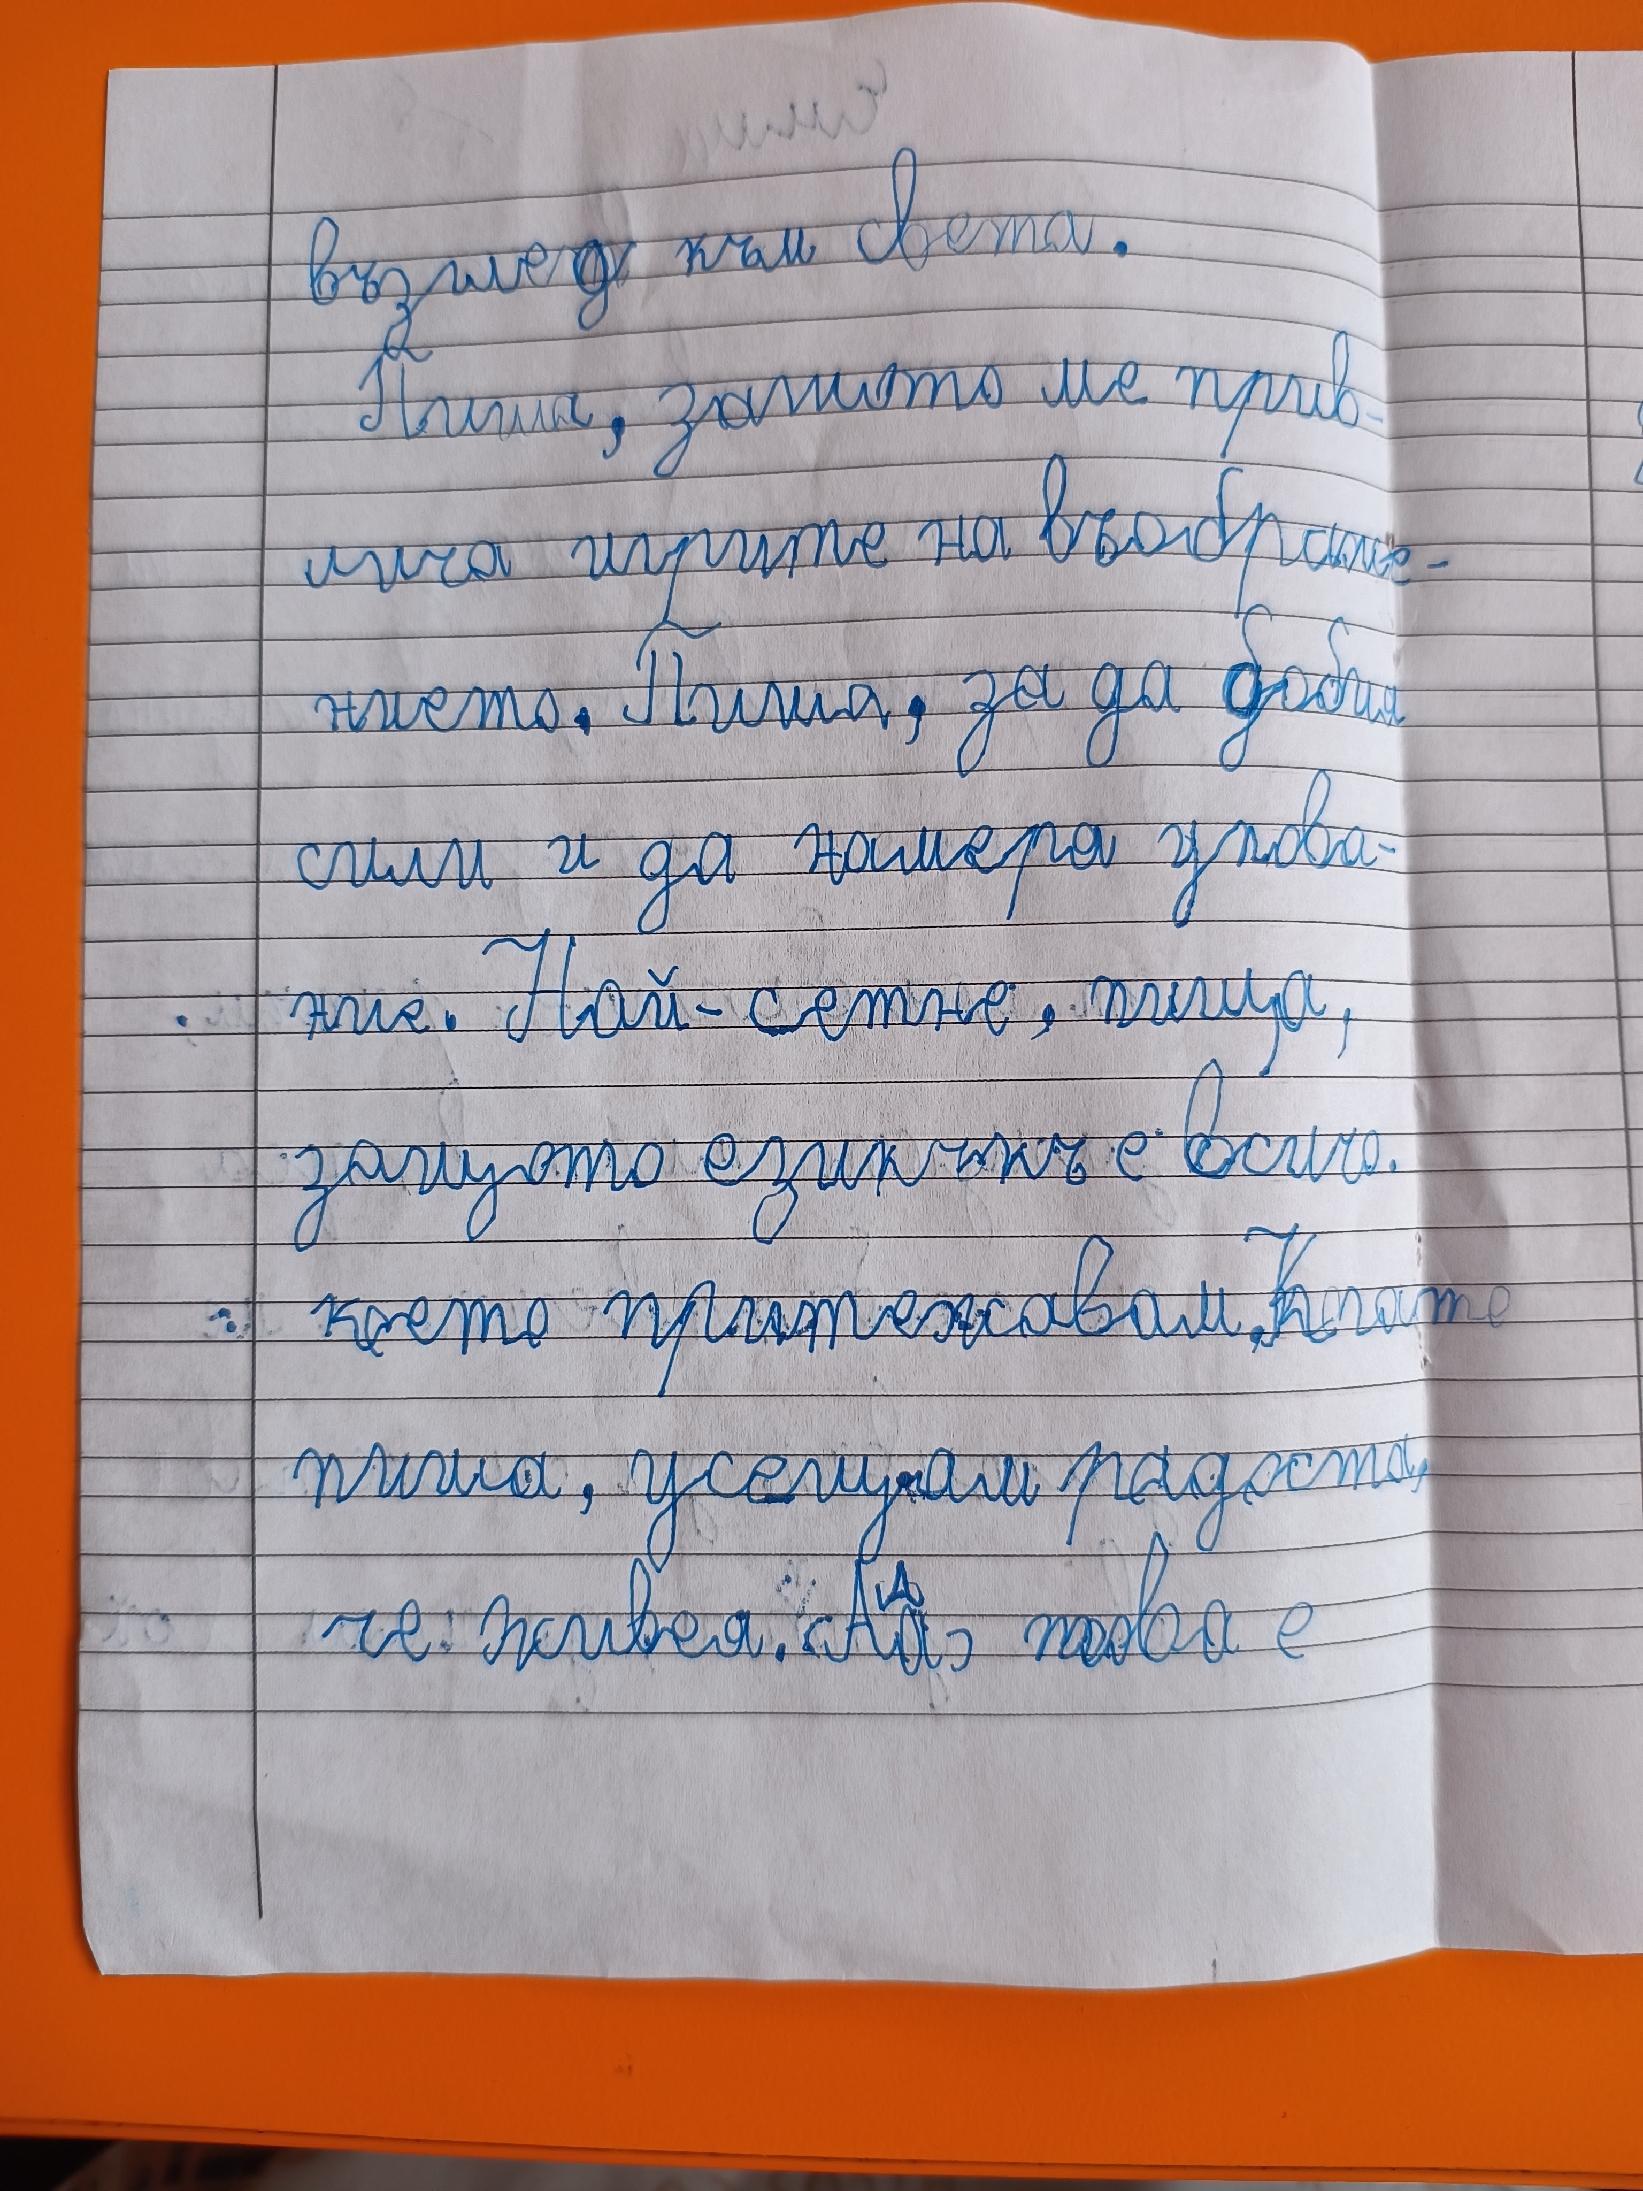 възглед към света.
Пиша, защото ме прив-
лича игрите на въображе-
нието. Пиша, за да добия
сили и да намеря упова-
ние. Най-сетне, пища,
защото езикъкъ е всичо.
което притежавам. Когато
пиша, усещам радостта,
че живея. Ад, това е